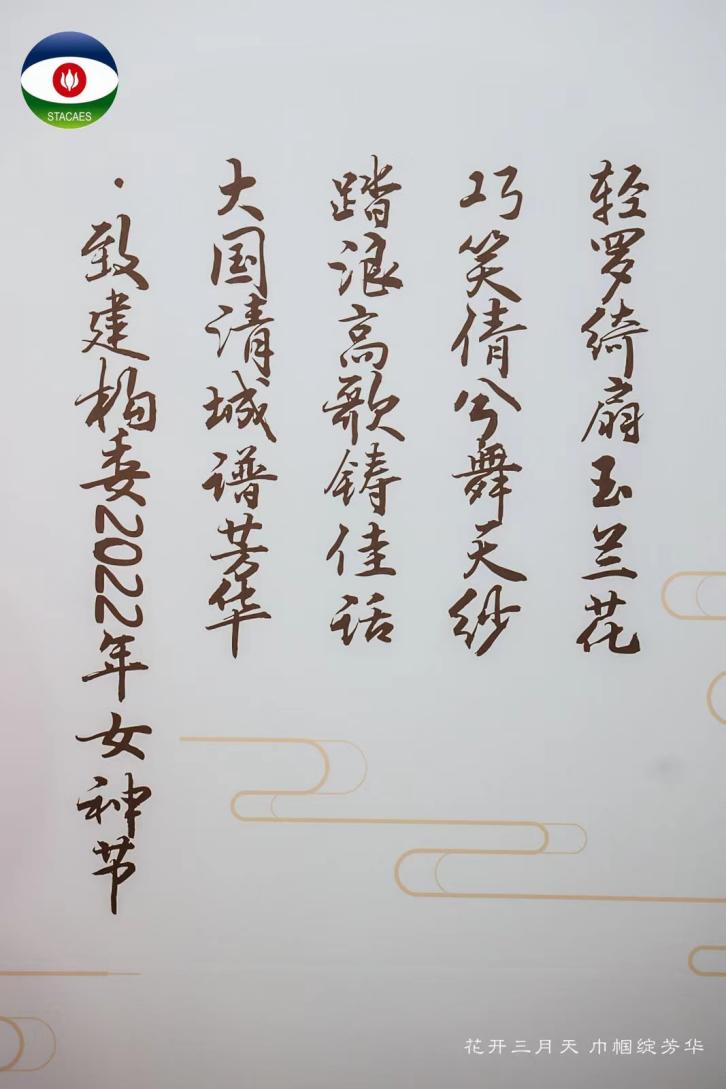 STACAES
轻罗绮扇玉兰花
巧笑倩兮舞天纱
踏浪高歌铸佳话
大国清城谱芳华
·致建构委2022年女神节
花开三月天 巾帼绽芳华